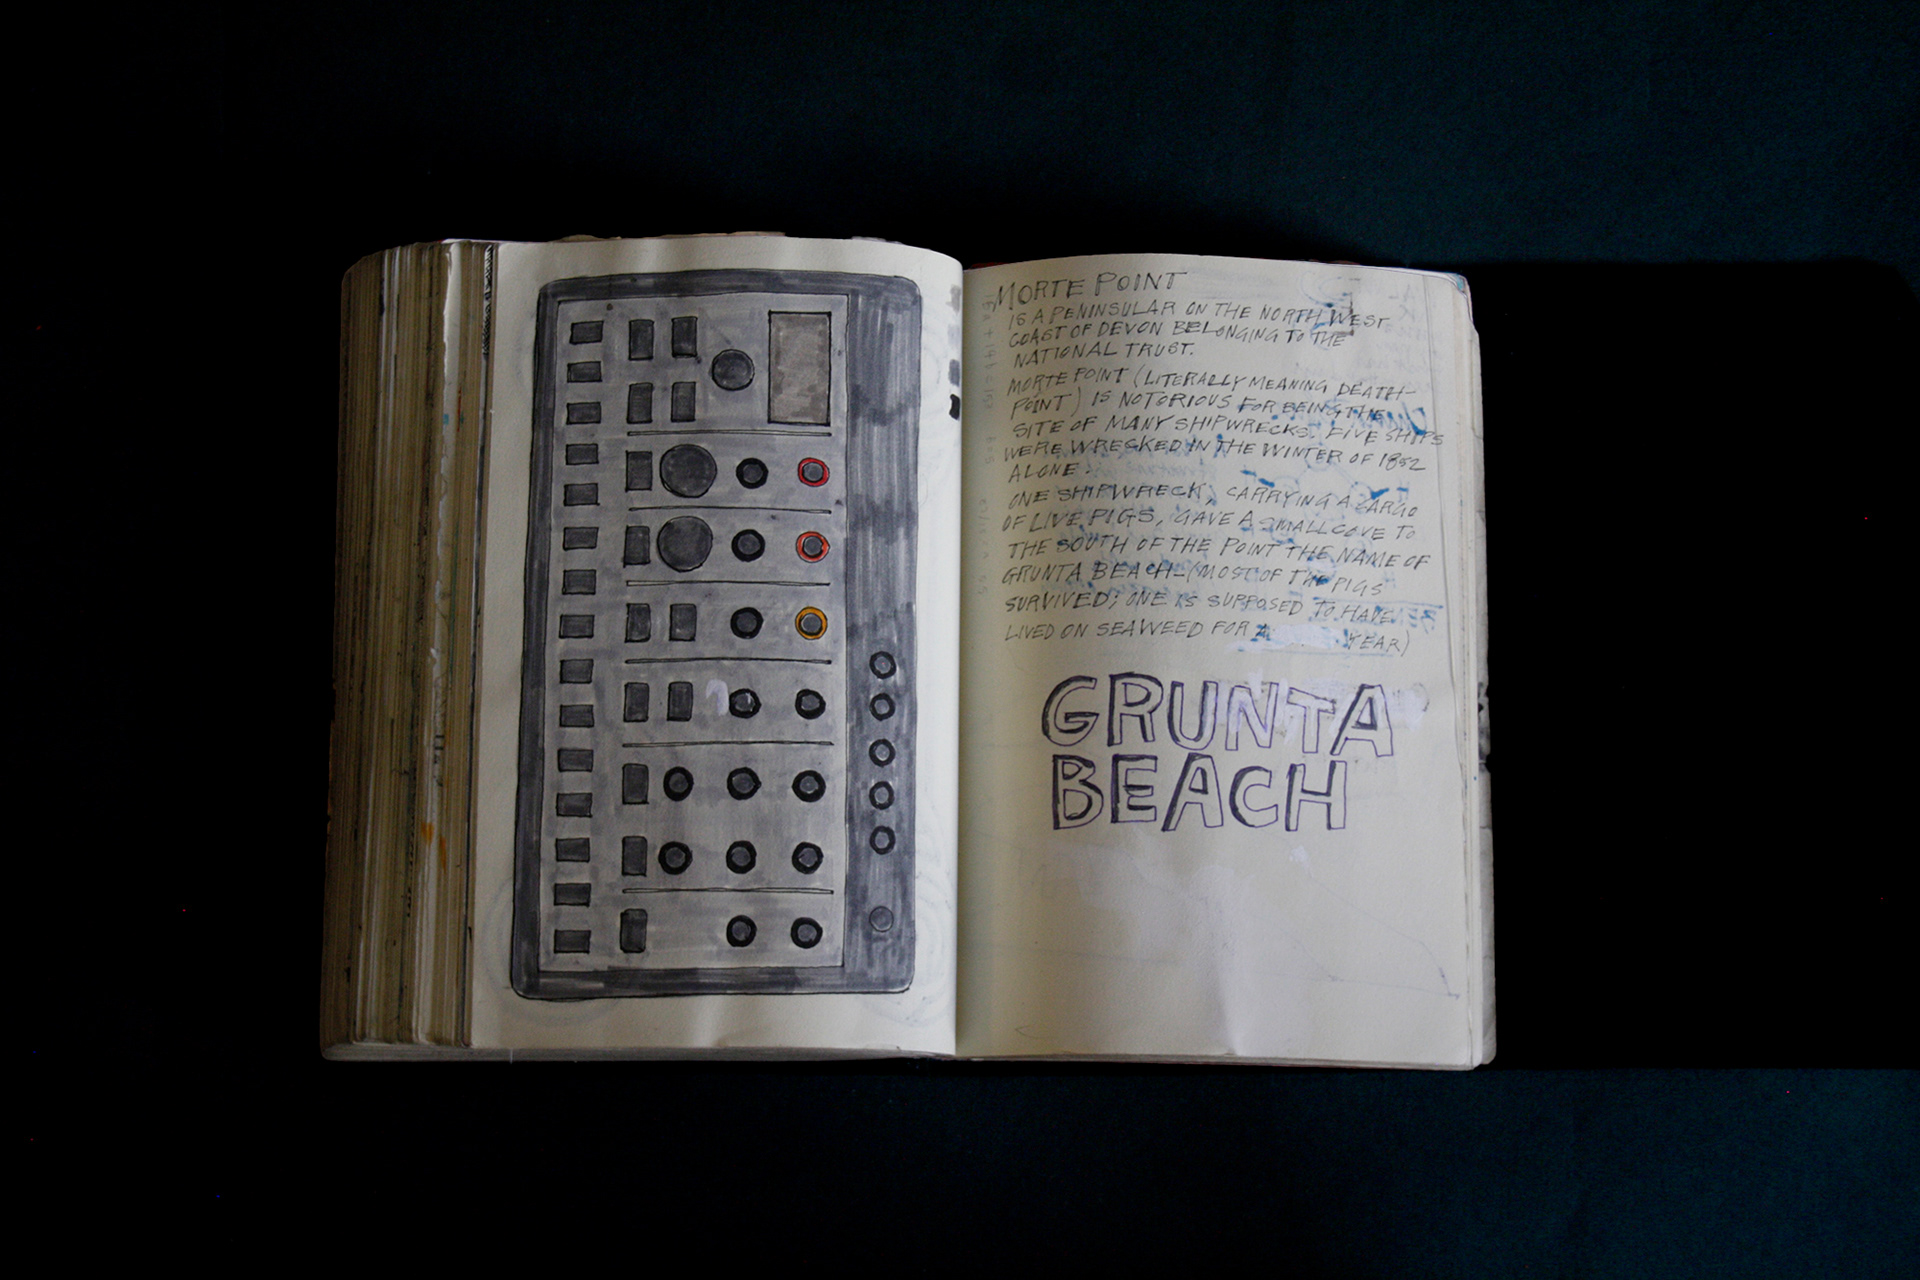 MORTE POINT
IS A PENINSULAR ON THE NORTH WEST
COAST OF DEVON BELONGING TO THE
NATIONAL TRUST.
MORTE POINT (LITERALLY MEANING DEATH-
POINT) IS NOTORIOUS FOR BEING THE
SITE OF MANY SHIPWRECKS. FIVE SHIPS
WERE WRECKED IN THE WINTER OF 1852
ALONE.
ONE SHIPWRECK, CARRYING A CARGO
OF LIVE PIGS, GAVE A SMALL COVE TO
THE SOUTH OF THE POINT THE NAME OF
GRUNTA BEACH-(MOST OF THE PIGS
SURVIVED; ONE IS SUPPOSED TO HAVE
LIVED ON SEAWEED FOR A YEAR)
GRUNTA
BEACH